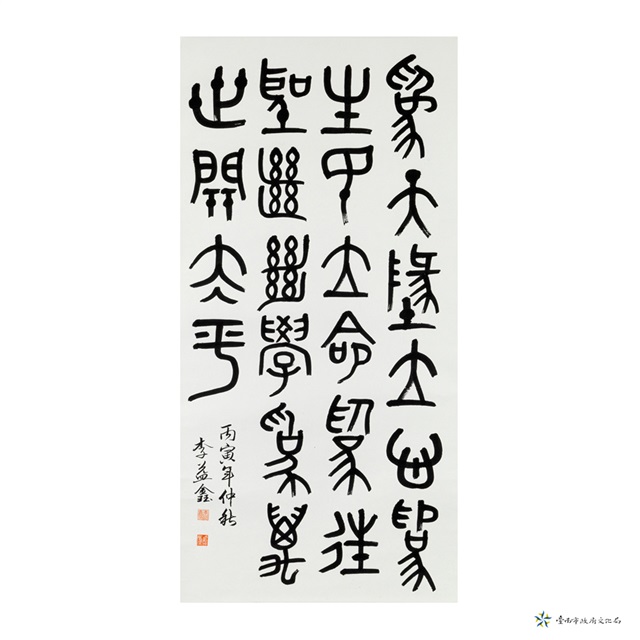 為天墬立心為
生民立命為往
聖繼絕學為萬
世開太平
丙寅年仲秋
李益鑫
臺南市政府文化局